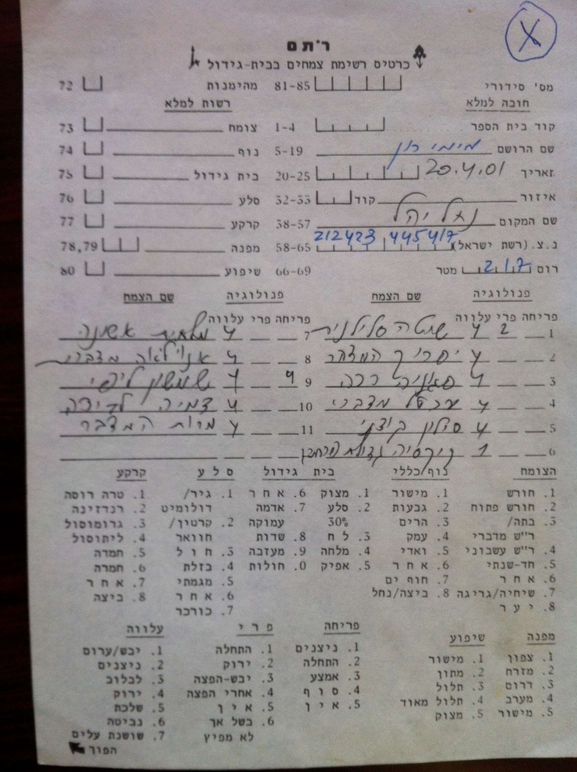 רתם
כרטיס רשימת צמחים בבית-גידול
מס' סידורי 81-85 מהימנות 72
חובה למלא רשות למלא
קוד בית הספר 1-4 צומח 73
שם הרושם מימי רון 5-19 נוף 74
תאריך 20.4.01 20-25 בית גידול 75
איזור קוד 32-33 סלע 76
שם המקום נחל יהל 38-57 קרקע 77
נ.צ. (רשת ישראל) 212423 445417 58-65 מפנה 78,79
רום 217 מטר 66-69 שיפוע 80
פנולוגיה שם הצמח פנולוגיה שם הצמח
פריחה פרי עלווה פריחה פרי עלווה
1 שיטה סלילנית 4 2 7 מלחית אשונה 4
2 4 8 4
3 4 9 4 4
4 ערטל מדברי 4 10 4
5 4 11 מרות המדבר 4
6 1
הצומח נוף כללי בית גידול סלע קרקע
1. חורש 1. מישור 1. מצוק 6. אחר 1. גיר/ 1. טרה רוסה
2. חורש פתוח 2. גבעות 2. סלע 7. אדמה דולומיט 2. רנדזינה
3. בתה/ 3. הרים 30% עמוקה 2. קרטון/ 3. גרומוסול
ר"ש מדברי 4. עמק 3. לח 8. שדות חוואר 4. ליתוסול
4. ר"ש עשבוני 5. ואדי 4. מלחה 9. מעזבה 3. חול 5. חמדה
5. חד-שנתי 6. אחר 5. אפיק 0. חולות 4. בזלת 6. חמרה
6. אחר 7. חוף ים 5. מגמתי 7. אחר
7. שיחיה/גריגה 8. ביצה/נחל 6. אחר 8. ביצה
8. יער 7. כורכר
מפנה שיפוע פריחה פרי עלווה
1. צפון 1. מישור 1. ניצנים 1. התחלה 1. יבש/ערום
2. מזרח 2. מתון 2. התחלה 2. ירוק 2. ניצנים
3. דרום 3. תלול 3. אמצע 3. יבש-הפצה 3. לבלוב
4. מערב 4. תלול מאוד 4. סוף 4. אחרי הפצה 4. ירוק
5. מישור 5. מצוק 5. אין 5. אין 5. שלכת
6. בשל אך 6. נביטה
לא מפיץ 7. שושנת עלים
הפוך